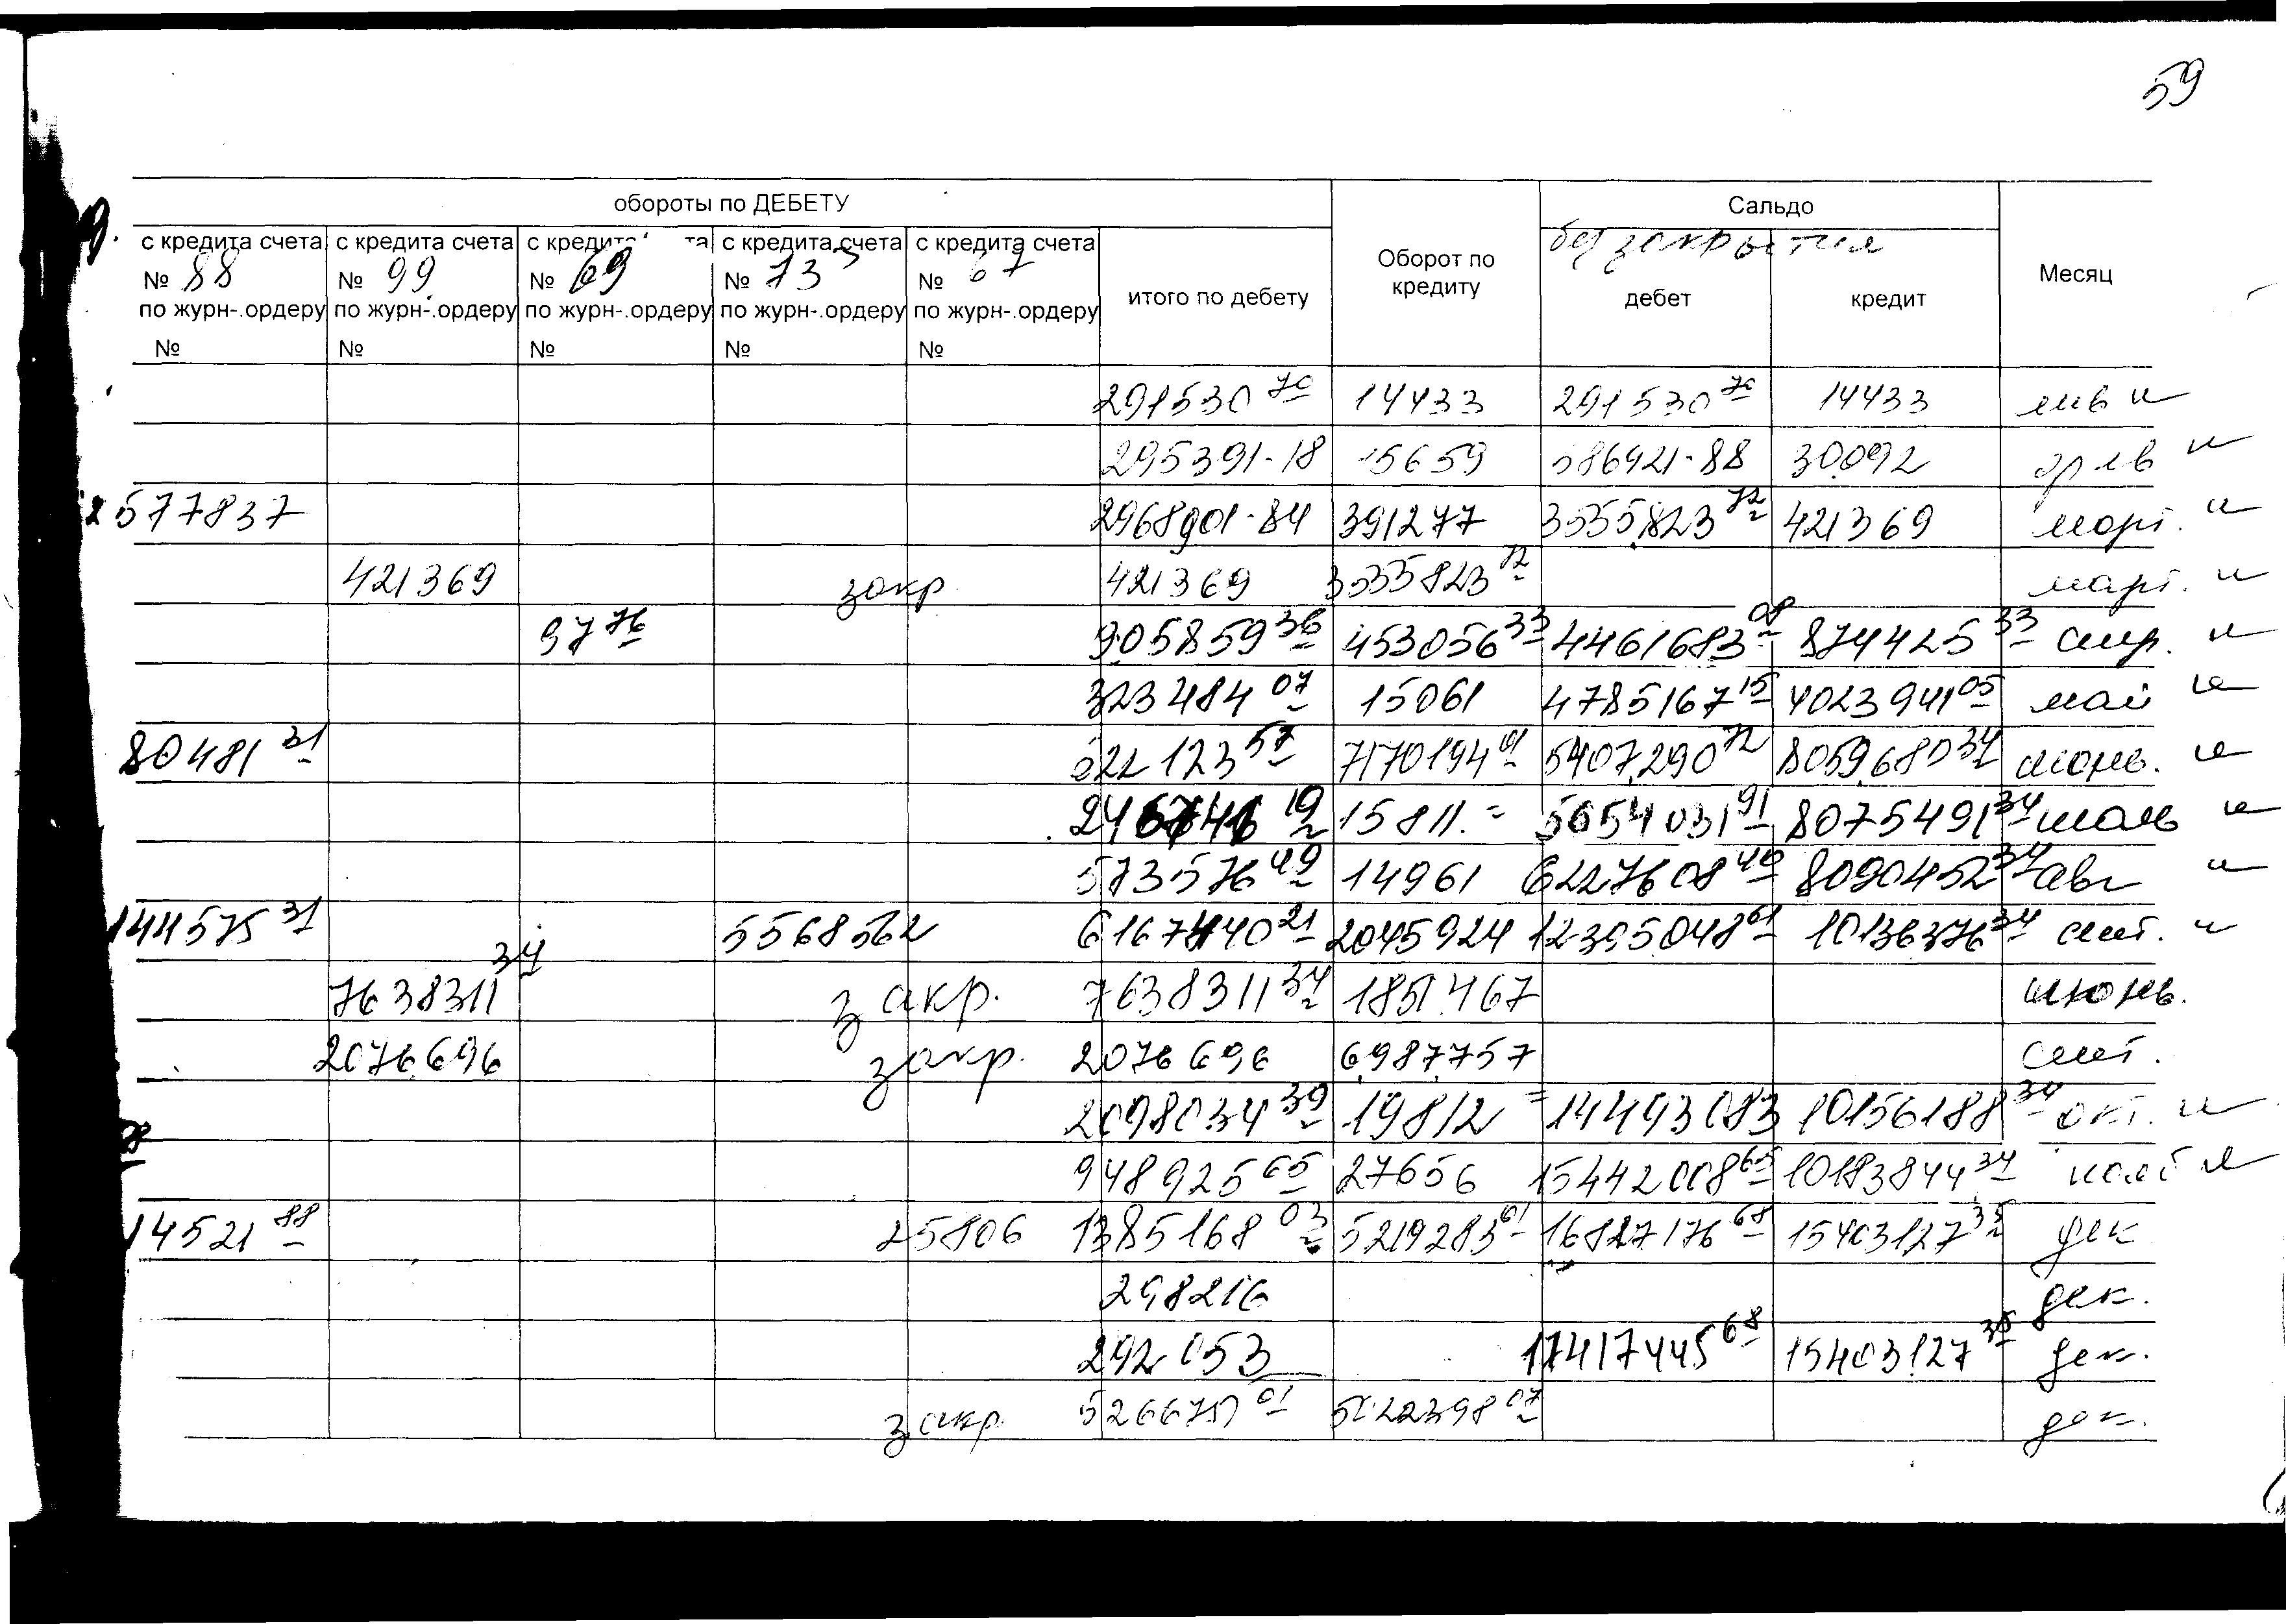 59
обороты по ДЕБЕТУ
Сальдо
без закрытия
с кредита счета с кредита счета с кредит та с кредита счета с кредита счета
№ 88 № 99 № 69 № 73 № 67
по журн-.ордеру по журн-.ордеру по журн-.ордеру по журн-.ордеру по журн-.ордеру
№ № № № №
итого по дебету
Оборот по
кредиту
дебет кредит
Месяц
291530 70 14433 291530 70 14433 янв
295391-18 15659 586921-88 30092 фев
2577837 2968901-84 391277 3555823 72 421369 март.
421369 закр. 421369 3555823 72 март.
97 76 905859 36 453056 33 4461683 08 874425 33 апр.
323484 07 15061 4785167 15 4023941 05 май
80481 31 622123 57 7170194 01 5407290 72 8059680 34 июнь.
246741 19 15811.= 5654031 91 8075491 34 июль
573576 49 14961 6227608 40 8090452 34 авг
144575 31 5568562 6167440 21 2045924 12395048 61 10136376 34 сент.
7638311 34 закр. 7638311 34 1851467 июнь.
2076696 закр. 2076696 6987757 сент.
2098034 39 19812 = 14493083 10156188 34 окт.
948925 65 27656 15442008 65 10183844 34 нояб
14521 88 25806 1385168 03 5219283 01 16827176 68 15403127 35 дек
298216 дек.
292053 17417445 68 15403127 35 дек.
закр. 01 07 дек.